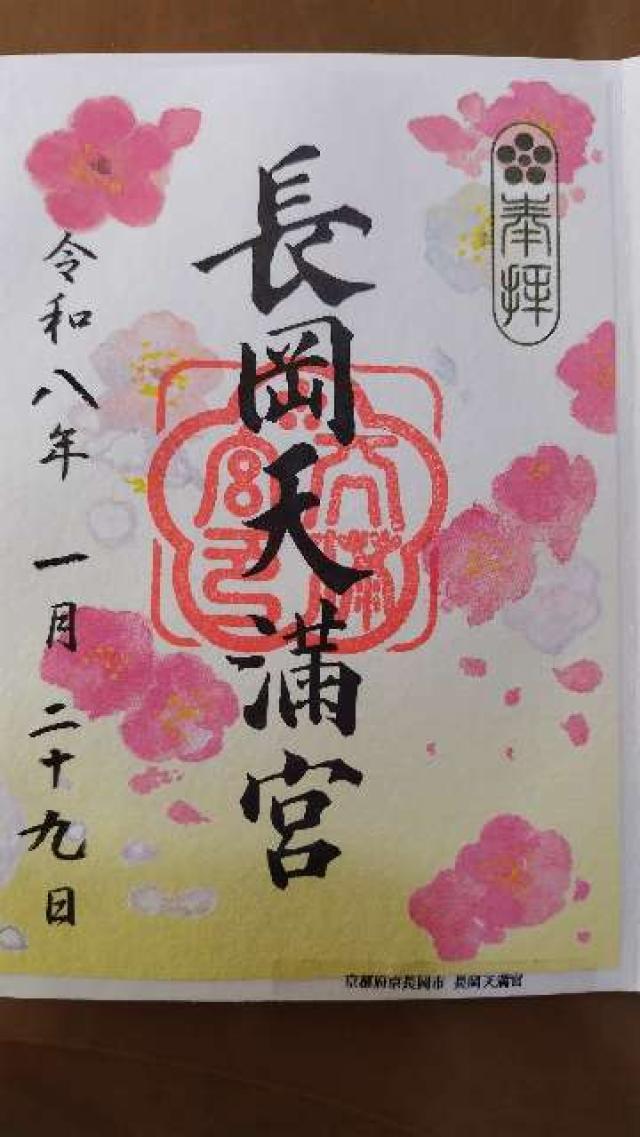 奉拝
長岡天満宮
天満宮印
令和八年 一月 二十九日
京都府京長岡市 長岡天満宮